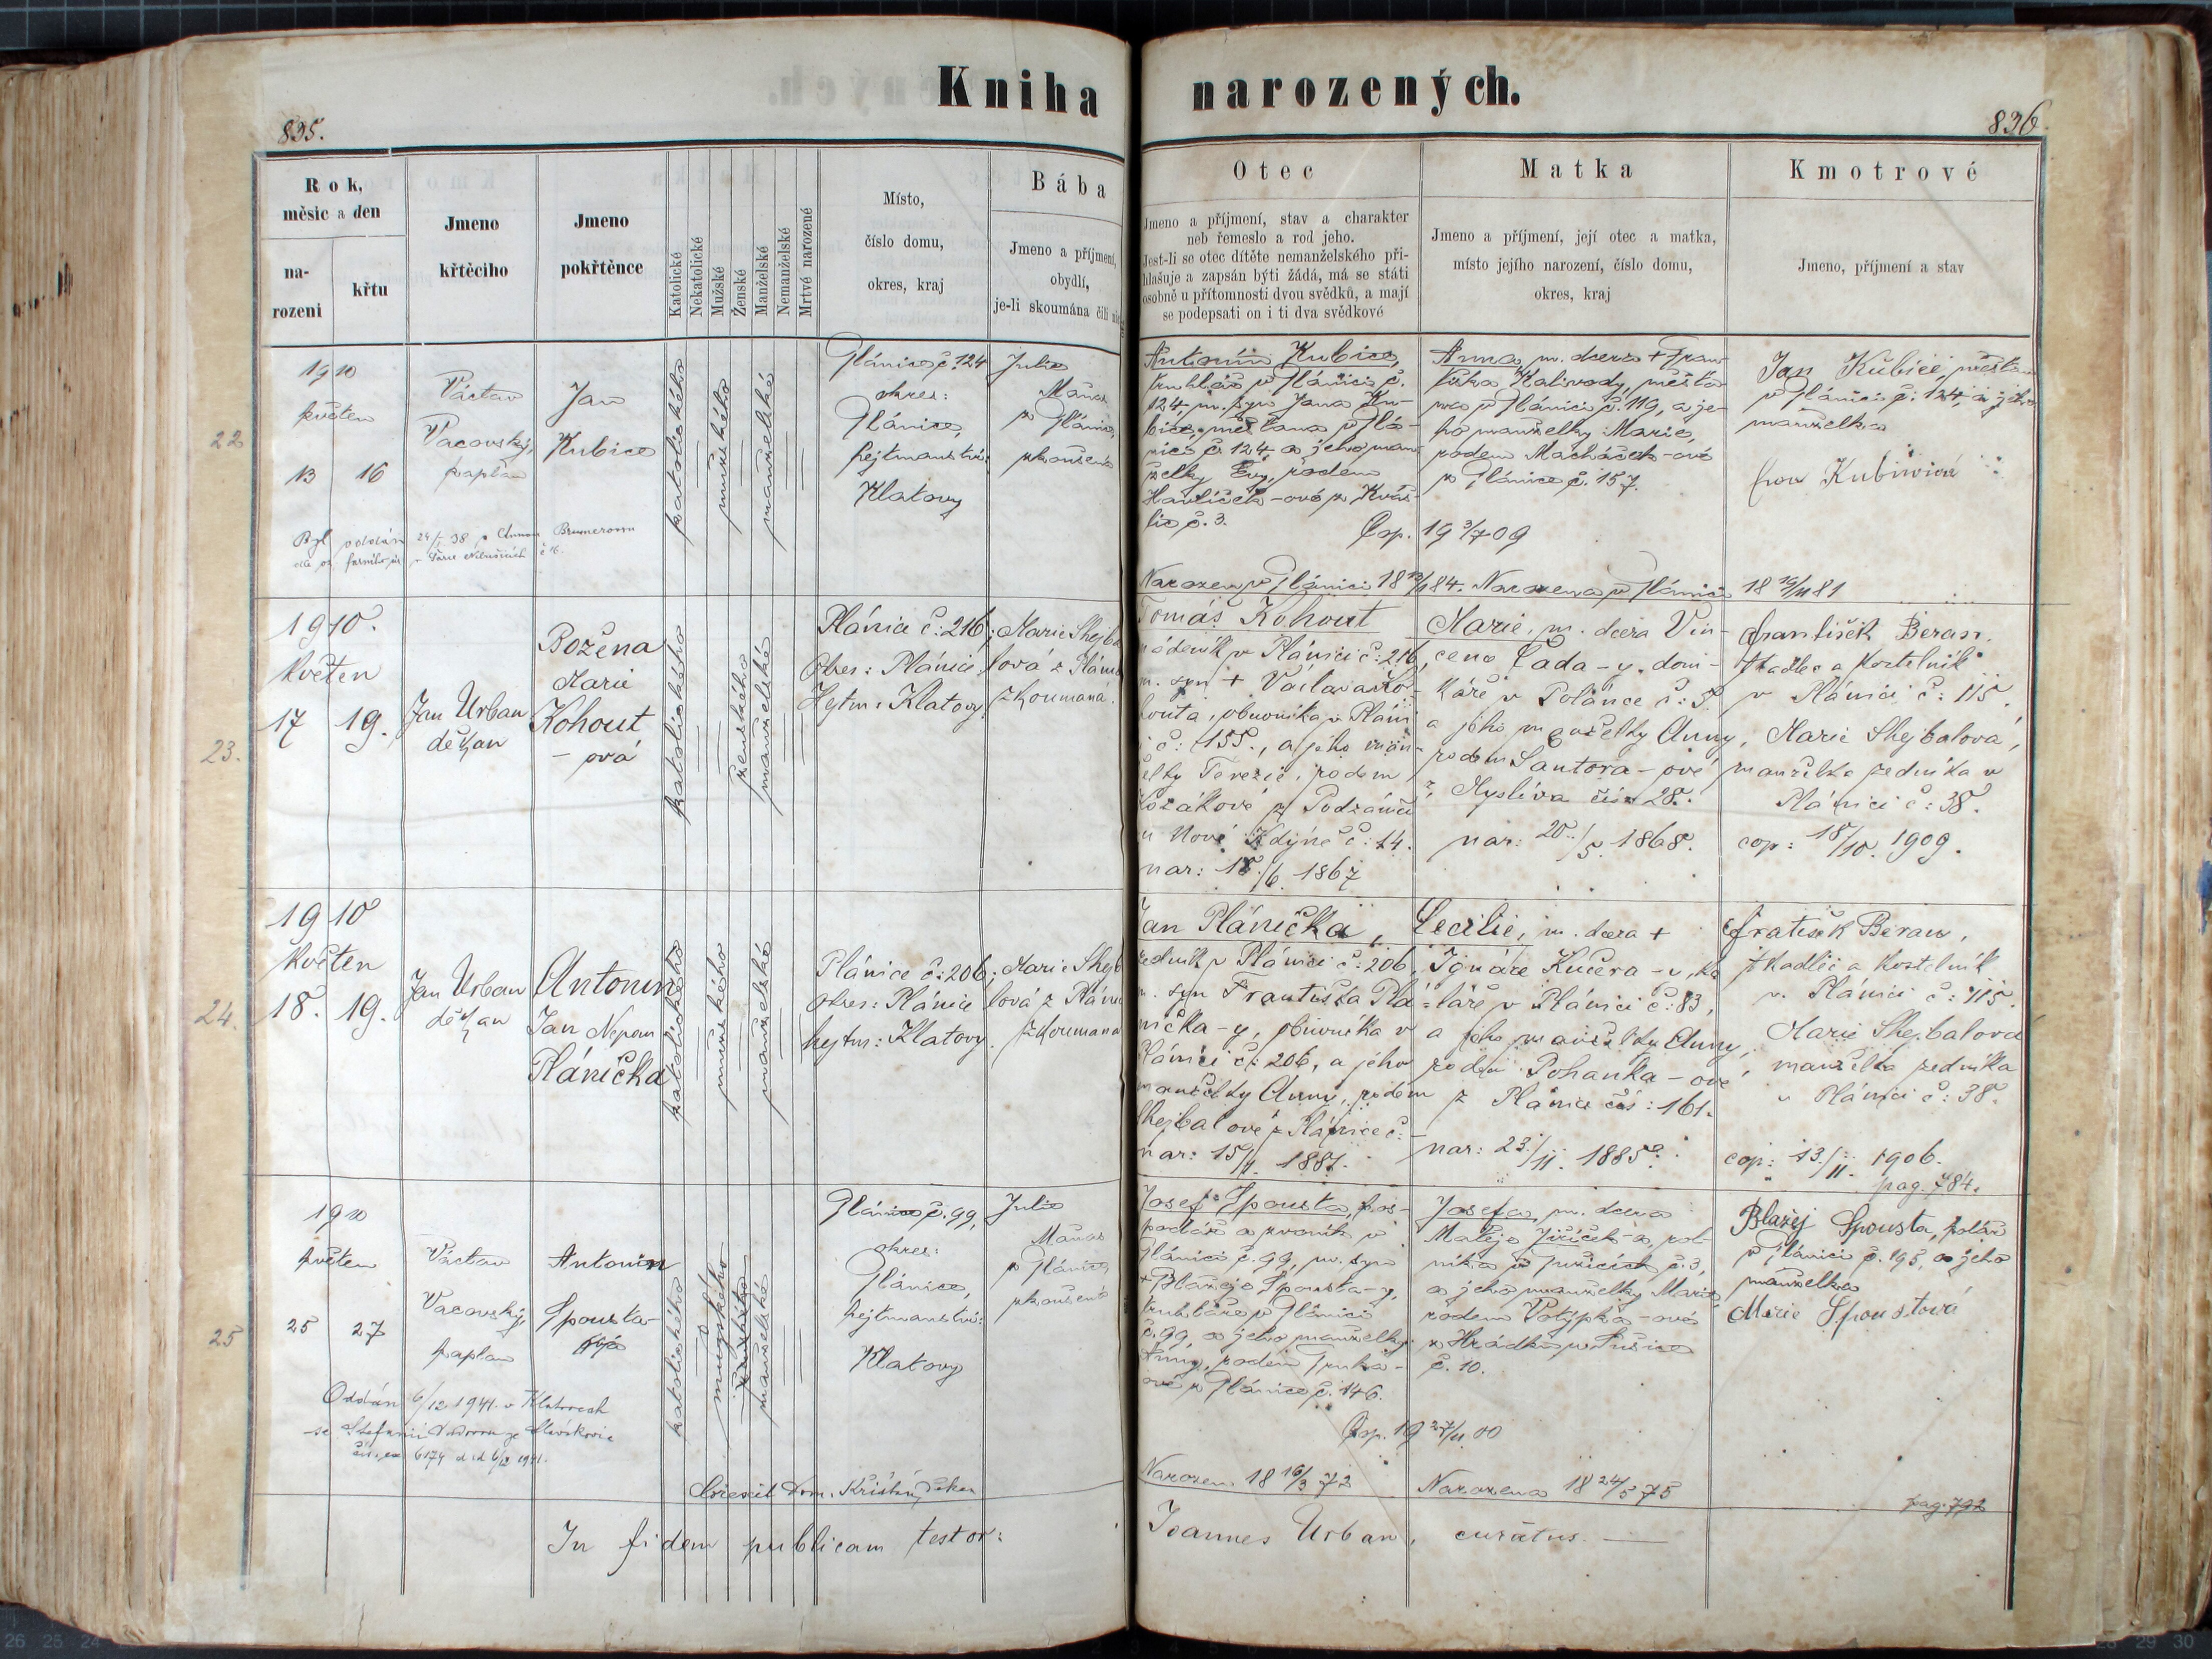 Kniha narozených.
835.
836.
Rok,
měsíc a den
na-
rozeni
křtu
Jmeno
křtěcího
Jmeno
pokřtěnce
Katolické
Nekatolické
Mužské
Ženské
Manželské
Nemanželské
Mrtvě narozené
Místo,
číslo domu,
okres, kraj
Bába
Jmeno a příjmení,
obydlí,
je-li skoumána čili
Otec
Jmeno a příjmení, stav a charakter
neb řemeslo a rod jeho.
Jest-li se otec dítěte nemanželského při-
hlašuje a zapsán býti žádá, má se státi
osobně u přítomnosti dvou svědků, a mají
se podepsati on i ti dva svědkové
Matka
Jmeno a příjmení, její otec a matka,
místo jejího narození, číslo domu,
okres, kraj
Kmotrové
Jmeno, příjmení a stav
22
1910
květen
13 16
Václav
Vacovský,
kaplan
Jan
Kubice
katolického
mužského
manželské
Plánice č. 124
okres:
Plánice,
hejtmanství:
Klatovy
Julie
Maňas
z Plánice,
zkoušená
Byl oddán 24/ 38 s Annou Brumerovou
č 16.
Antonín Kubice,
truhlář v Plánici č.
124, m. syn Jana Ku-
bice, měšťana v Plá-
nici č. 124 a jeho man-
želky Evy, rodem
Havlíček-ové z Kváš-
lic č. 3.
Cop. 19 3/7 09
Narozen v Plánici
Anna, m. dcera + Fran-
tiška Kalivody, měšťa-
na v Plánici č. 119, a je-
ho manželky Marie,
rodem Macháček-ové
z Plánice č. 157.
Narozena v Plánici 18 19/11 81
Jan Kubice, měšťan
v Plánici č. 124, a jeho
manželka
23.
1910.
Květen
17 19.
Jan Urban
děkan
Božena
Marie
Kohout
- ová
katolického
ženského
manželské
Plánice č: 216;
Okres: Plánice
Hejtm: Klatovy.
Marie Shejba
lová z Plánice
zkoumaná.
Tomáš Kohout
nádeník v Plánici č: 216,
m. syn + Václava Ko-
houta, obuvníka v Pláni
č: 155., a jeho man-
želky Terezie, rodem
Kozákové z Podzámčí
u Nové Kdýně č: 14.
nar: 18./6. 1867
Marie, m. dcera Vin-
cence Čada-y, domi-
káře v Polánce č: 5.
a jeho manželky Anny,
rodem Santora-ové
z Myslíva čís 28.
nar: 20./5. 1868.
František Beran.
tkadlec a kostelník
v Plánici č: 115.
Marie Shejbalová,
manželka zedníka v
Plánici č: 38.
cop: 18/10. 1909.
24.
1910
Květen
18. 19.
Jan Urban
děkan
Antonin
Jan Nepom
Plánička
katolického
mužského
manželské
Plánice č: 206;
okres: Plánice
hejtm: Klatovy.
Marie Shejb
lová z Plánice
zkoumana
Jan Plánička,
zedník v Plánici č: 206,
m. syn Františka Plá-
nička-y, obuvníka v
Plánici č: 206, a jeho
manželky Anny, rodem
Shejbalové z Plánice č:
nar: 15/4. 1881.
Cecilie, m. dcera +
Ignáce Kučera-y, ko
láře v Plánici č: 83,
a jeho manželky Anny,
rodem Pohanka-ové
z Plánice čís: 161.
nar: 23./11. 1885.
Fratišek Beran,
tkadlec a kostelník
v. Plánici č: 115.
Marie Shejbalová
manželka zedníka
v Plánici č: 38.
cop: 13./11. 1906.
pag. 784.
25
1910
květen
25 27
Václav
Vacovský,
kaplan
Antonín
Spousta-
katolického
mužského
manželské
Plánice č. 99,
okres:
Plánice,
hejtmanství:
Klatovy
Julie
Maňas
z Plánice,
zkoušená
Oddán 6/12 1941. v Klatovech
se Stefanií
6174 d d 6/12 1941.
děkan
Josef Spousta, hos-
podář a zvoník v
Plánici č. 99, m. syn
+ Blažeje Spousta-y,
truhláře v Plánici
č. 99, a jeho manželky
Anny, rodem
ové z Plánice č. 146.
Cop. 19 27/11 00
Narozen 18 16/3 72
Josefa, m. dcera
Matěje Jiříček-a, rol-
níka v č. 3,
a jeho manželky Marie,
rodem Potýpka-ové
z Hrádku
č. 10.
Narozena 18 24/5 75
Blažej Spousta, kolář
v Plánici č. 195, a jeho
manželka
Marie Spoustová
pag. 792
In fidem publicam testor:
Joannes Urban, curatus.